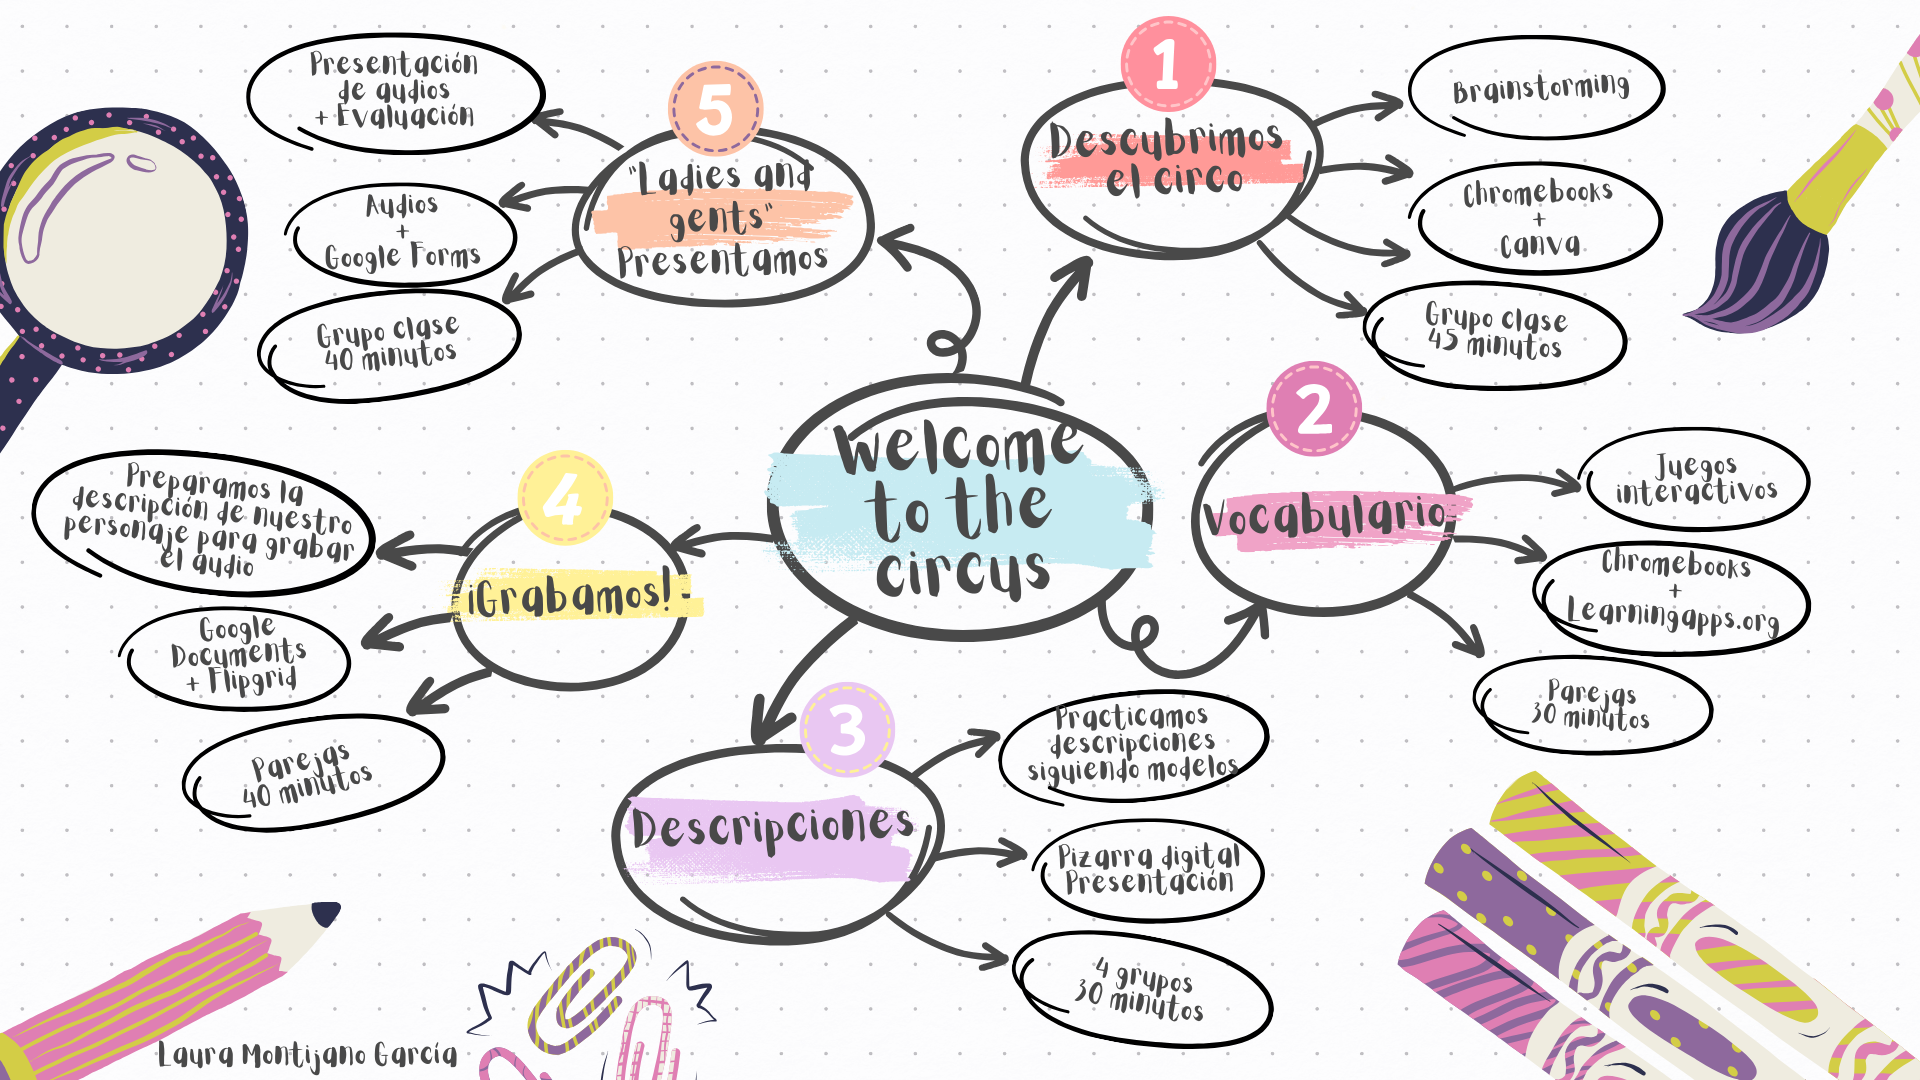 Welcome
to the
circus
1
Descubrimos
el circo
Brainstorming
Chromebooks
+
Canva
Grupo clase
45 minutos
2
Vocabulario
Juegos
interactivos
Chromebooks
+
Learningapps.org
Parejas
30 minutos
3
Descripciones
Practicamos
descripciones
siguiendo modelos
Pizarra digital
Presentación
4 grupos
30 minutos
4
¡Grabamos!
Preparamos la
descripción de nuestro
personaje para grabar
el audio
Google
Documents
+ Flipgrid
Parejas
40 minutos
5
"Ladies and
gents"
Presentamos
Presentación
de audios
+ Evaluación
Audios
+
Google Forms
Grupo clase
40 minutos
Laura Montijano García